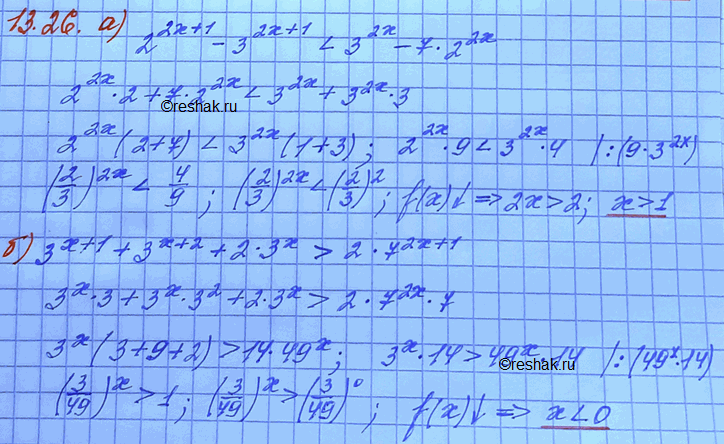 13.26. а) 2^(2x+1) - 3^(2x+1) < 3^(2x) - 7·2^(2x)
2^(2x)·2 + 7·2^(2x) < 3^(2x) + 3^(2x)·3
©reshak.ru
2^(2x)(2+7) < 3^(2x)(1+3); 2^(2x)·9 < 3^(2x)·4 |:(9·3^(2x))
(2/3)^(2x) < 4/9; (2/3)^(2x) < (2/3)^2; f(x)↓ => 2x>2; x>1
б) 3^(x+1) + 3^(x+2) + 2·3^x > 2·7^(2x+1)
3^x·3 + 3^x·3^2 + 2·3^x > 2·7^(2x)·7
3^x(3+9+2) > 14·49^x; 3^x·14 > 49^x·14 |:(49^x·14)
©reshak.ru
(3/49)^x > 1; (3/49)^x > (3/49)^0; f(x)↓ => x<0